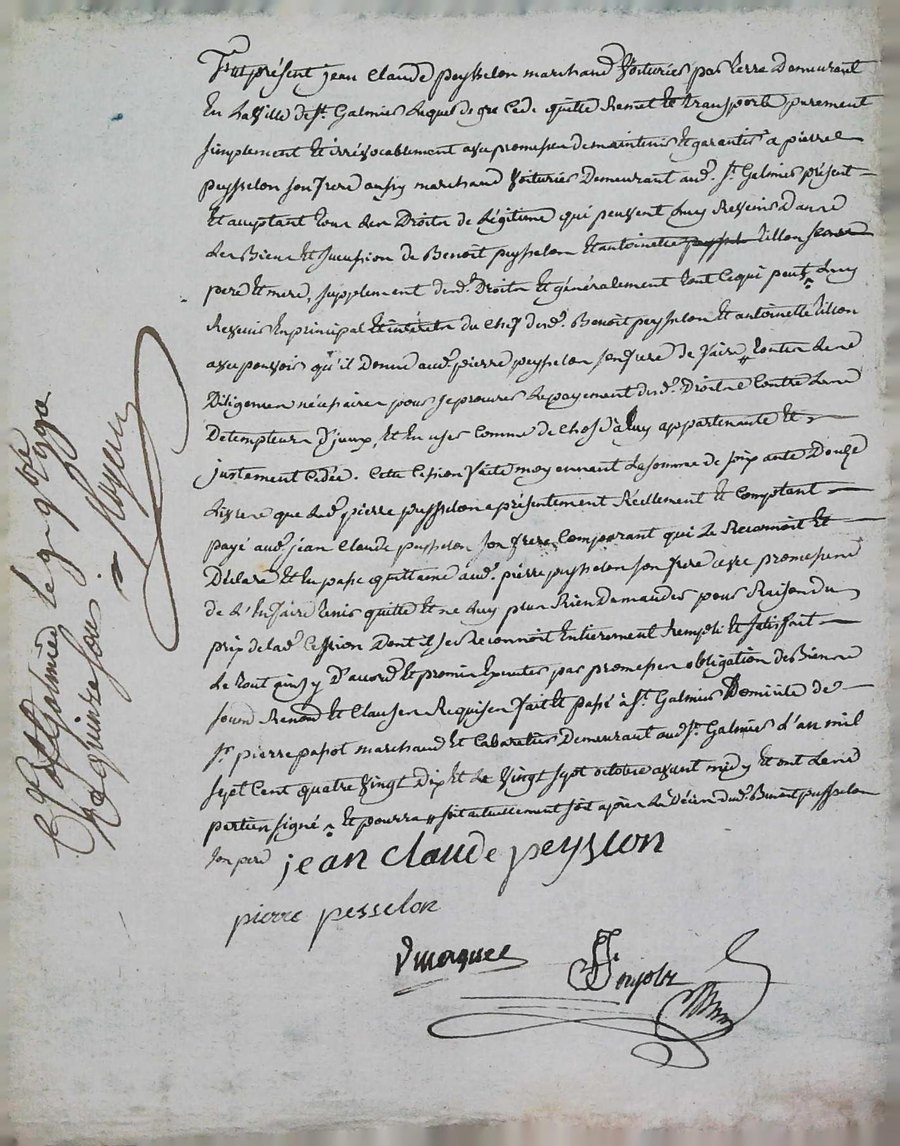 Fut présent jean Claude peysselon marchand voiturier par terre Demeurant
En La Ville de St. Galmier Lequel de gre Cede quitte Remet Et transporte purement
simplement Et irrévocablement avec promesse de maintenir Et garantir a pierre
peysselon son frere aussy marchand Voiturier Demeurant aud. St. Galmier présent
Et acceptant tous les Droits de Légitime qui peuvent Luy Revenir dans
Les Biens Et sucession de Benoit peysselon Et antoinette peyssel Lillon
pere Et mere, supplement desd. Droits Et généralement tout Ce qui peut Luy
Revenir En principal Et intérêts du Chef desd. Benoit peysselon Et antoinette Lillon
avec pouvoir qu'il Donne aud. pierre peysselon son frere de faire toutes Les
Diligences nécéssaires pour se procurer Le payement desd. Droits Contre Les
Detempteurs D'jceux, Et En user Comme de Chose à Luy appartenante Et
justement Cédée. Cette Cession faite moyennant La somme de soixante Douze
Livres que Led. pierre peysselon a présentement Réellement Et Comptant
payé aud. jean Claude peysselon son frere Comparant qui Le Reconnoit Et
Déclare Et En passe quittance aud. pierre peysselon son frere avec promesse
de L'En faire tenir quitte Et ne Luy plus Rien Demander pour Raison du
prix de Lad. Cession Dont il se Reconnoit Entierement Rempli Et satisfait
Le tout ainsy D'accord Et promis Executer par promesses obligation de Biens
soum Renond Et Clauses Requises fait Et passé à St. Galmier Domicile de
Sr. pierre papot marchand Et Cabaretier Demeurant aud. St. Galmier L'an mil
sept Cent quatre Vingt Dix Et Le Vingt sept octobre avant midy Et ont Les
parties signé Et pourra soit actuellement soit après Le Décès dud. Benoit peysselon
son pere
jean claude peysselon
pierre pesselon